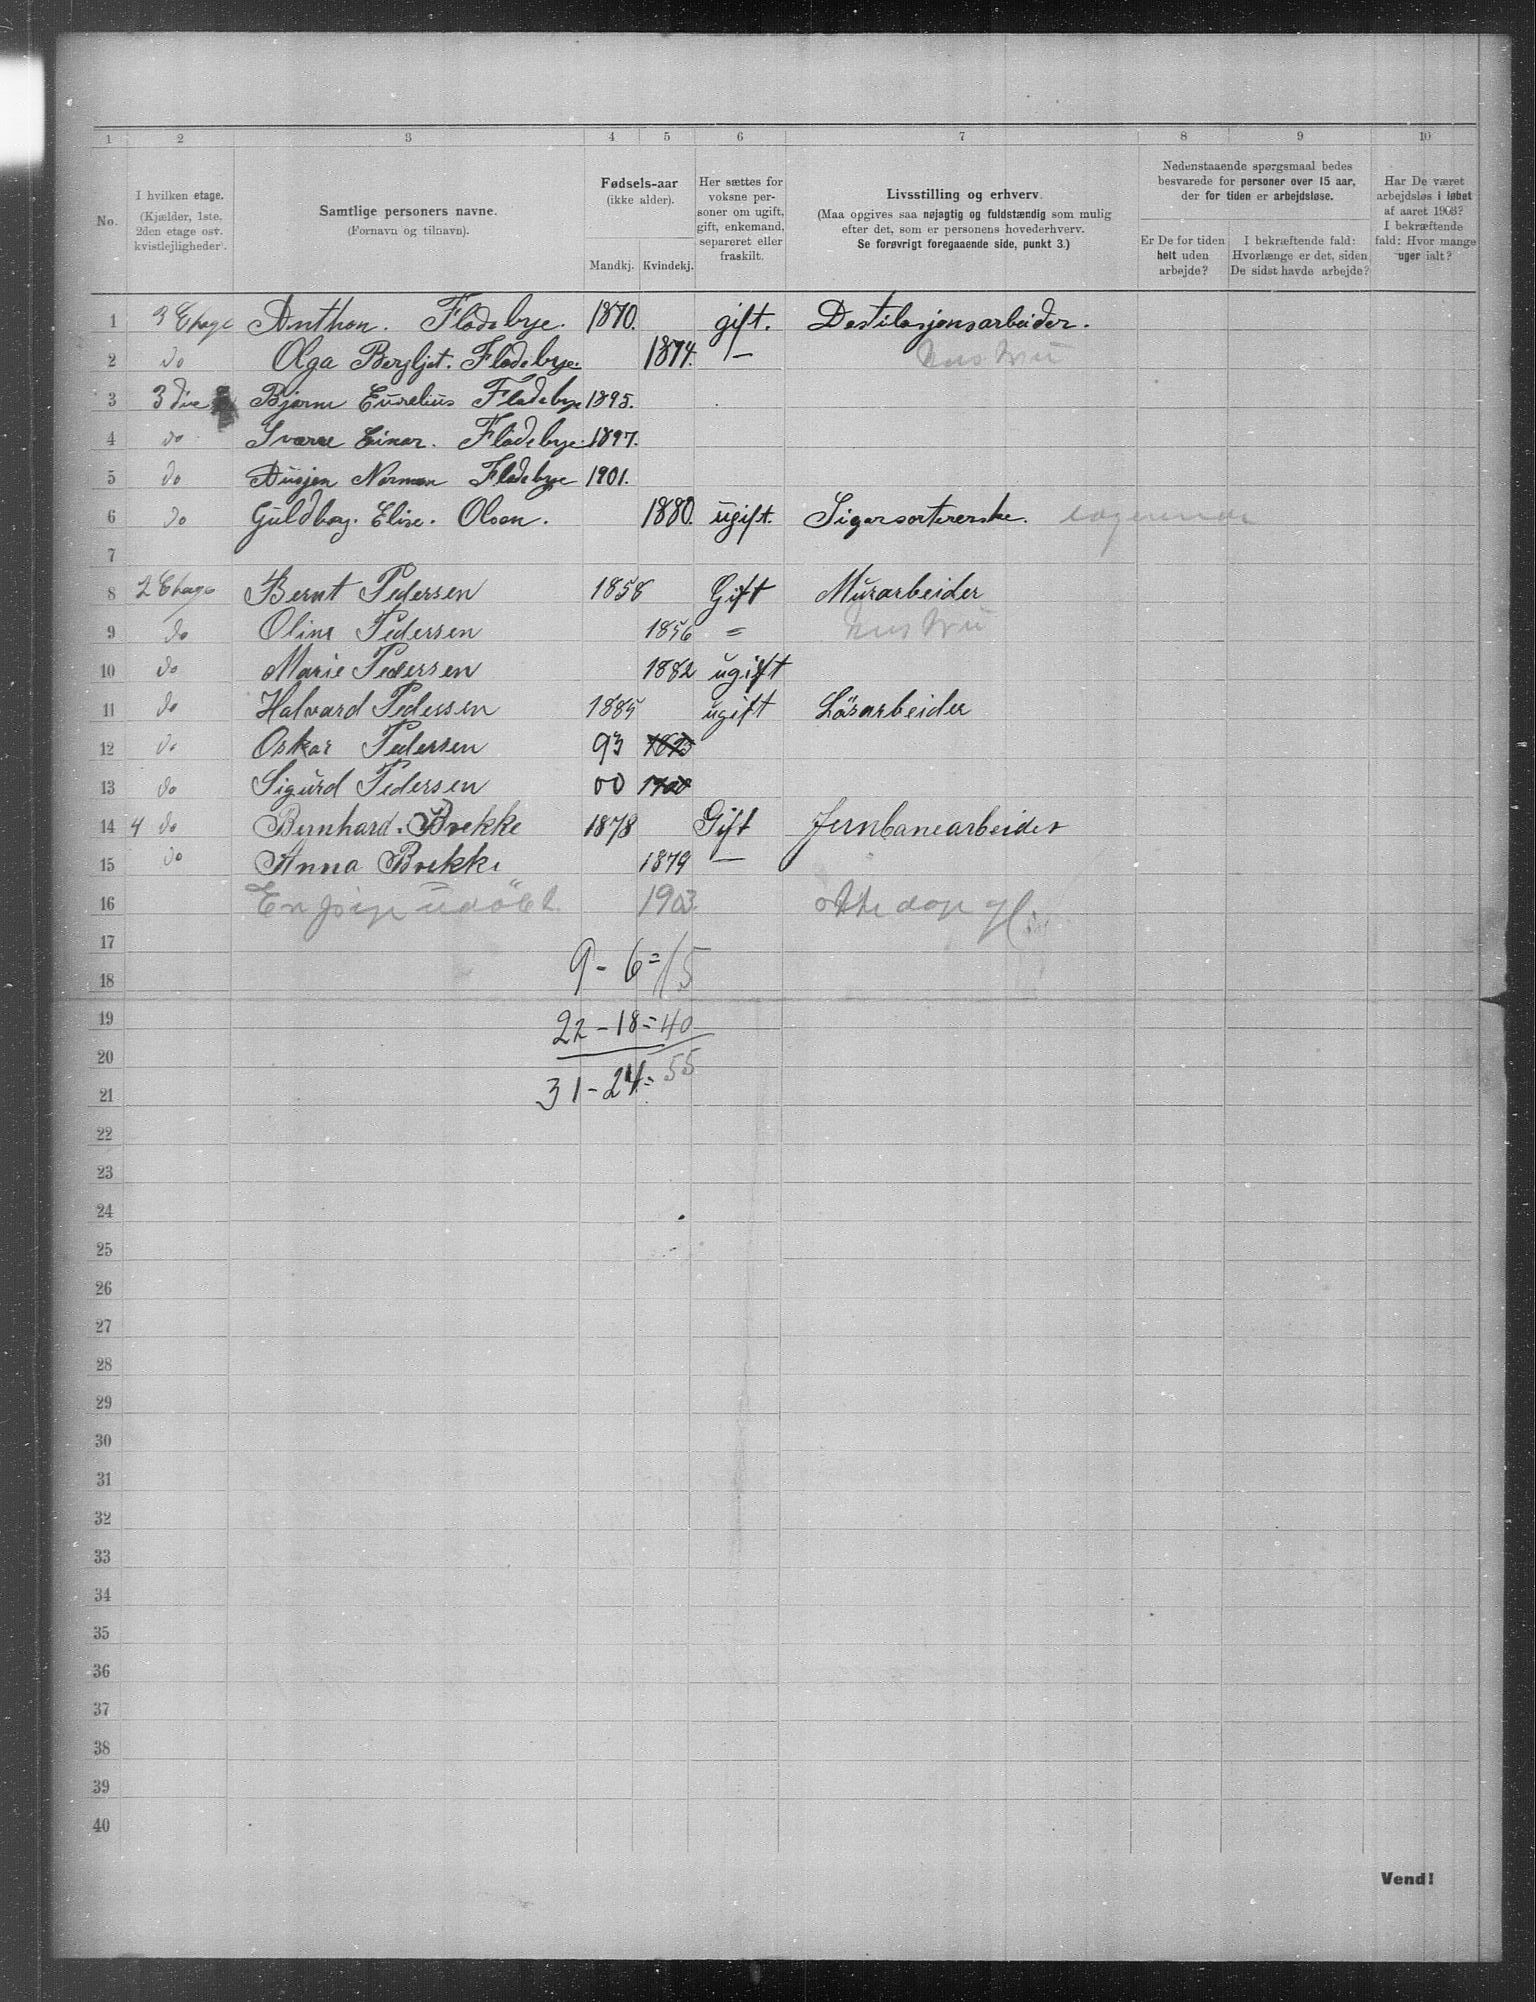 1 2 3 4 5 6 7 8 9 10
No.
I hvilken etage. (Kjælder, 1ste, 2den etage osv. kvistlejligheder).
Samtlige personers navne. (Fornavn og tilnavn).
Fødsels-aar (ikke alder).
Mandkj. Kvindekj.
Her sættes for voksne personer om ugift, gift, enkemand, separeret eller fraskilt.
Livsstilling og erhverv. (Maa opgives saa nøjagtig og fuldstændig som mulig efter det, som er personens hovederhverv. Se forøvrigt foregaaende side, punkt 3.)
Nedenstaaende spørgsmaal bedes besvarede for personer over 15 aar, der for tiden er arbejdsløse.
Er De for tiden helt uden arbejde?
I bekræftende fald: Hvorlænge er det, siden De sidst havde arbejde?
Har De været arbejdsløs i løbet af aaret 1903? I bekræftende fald: Hvor mange uger ialt?
1 3 Etage Anthon. Flodebye. 1870. gift. Destilasjonsarbeider.
2 do Olga Bergljot. Flodebye. 1874. — hustru
3 3 Bjarne Eurelius Flodebye 1895.
4 do Sværre Einar. Flodebye. 1897.
5 do Norman Flodebye 1901.
6 do Guldborg. Elise. Olsen. 1880. ugift. Sigarsortererske. logerende
7
8 2 Etage Bernt Pedersen 1858 Gift Murarbeider
9 do Oline Pedersen 1856 = hustru
10 do Marie Pedersen 1882 ugift
11 do Halvard Pedersen 1885 ugift Lösarbeider
12 do Oskar Pedersen 93 1893
13 do Sigurd Pedersen 00 1900
14 4 do Bernhard. Brekke 1878 Gift Jernbanearbeider
15 do Anna Brekke 1879 —
16 En pige udöbt. 1903 otte dage gl
17
18 9 - 6 = 15
19 22 - 18 = 40
20
21 31 - 24 = 55
22
23
24
25
26
27
28
29
30
31
32
33
34
35
36
37
38
39
40
Vend!